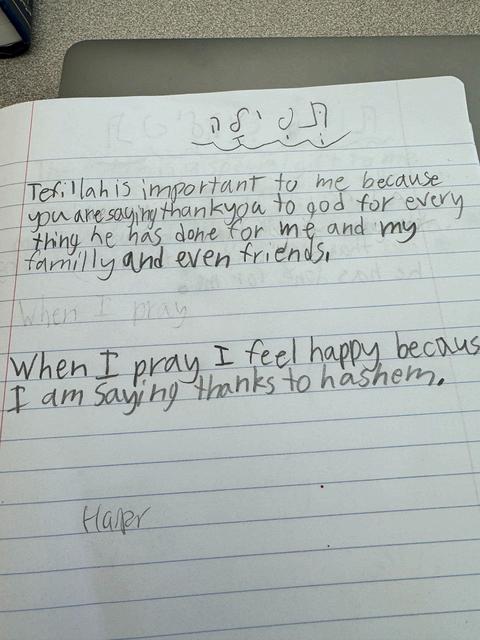 תפילה
Tefillah is important to me because
you are saying thankyou to god for every
thing he has done for me and my
familly and even friends.
When I pray
When I pray I feel happy becaus
I am saying thanks to hashem.